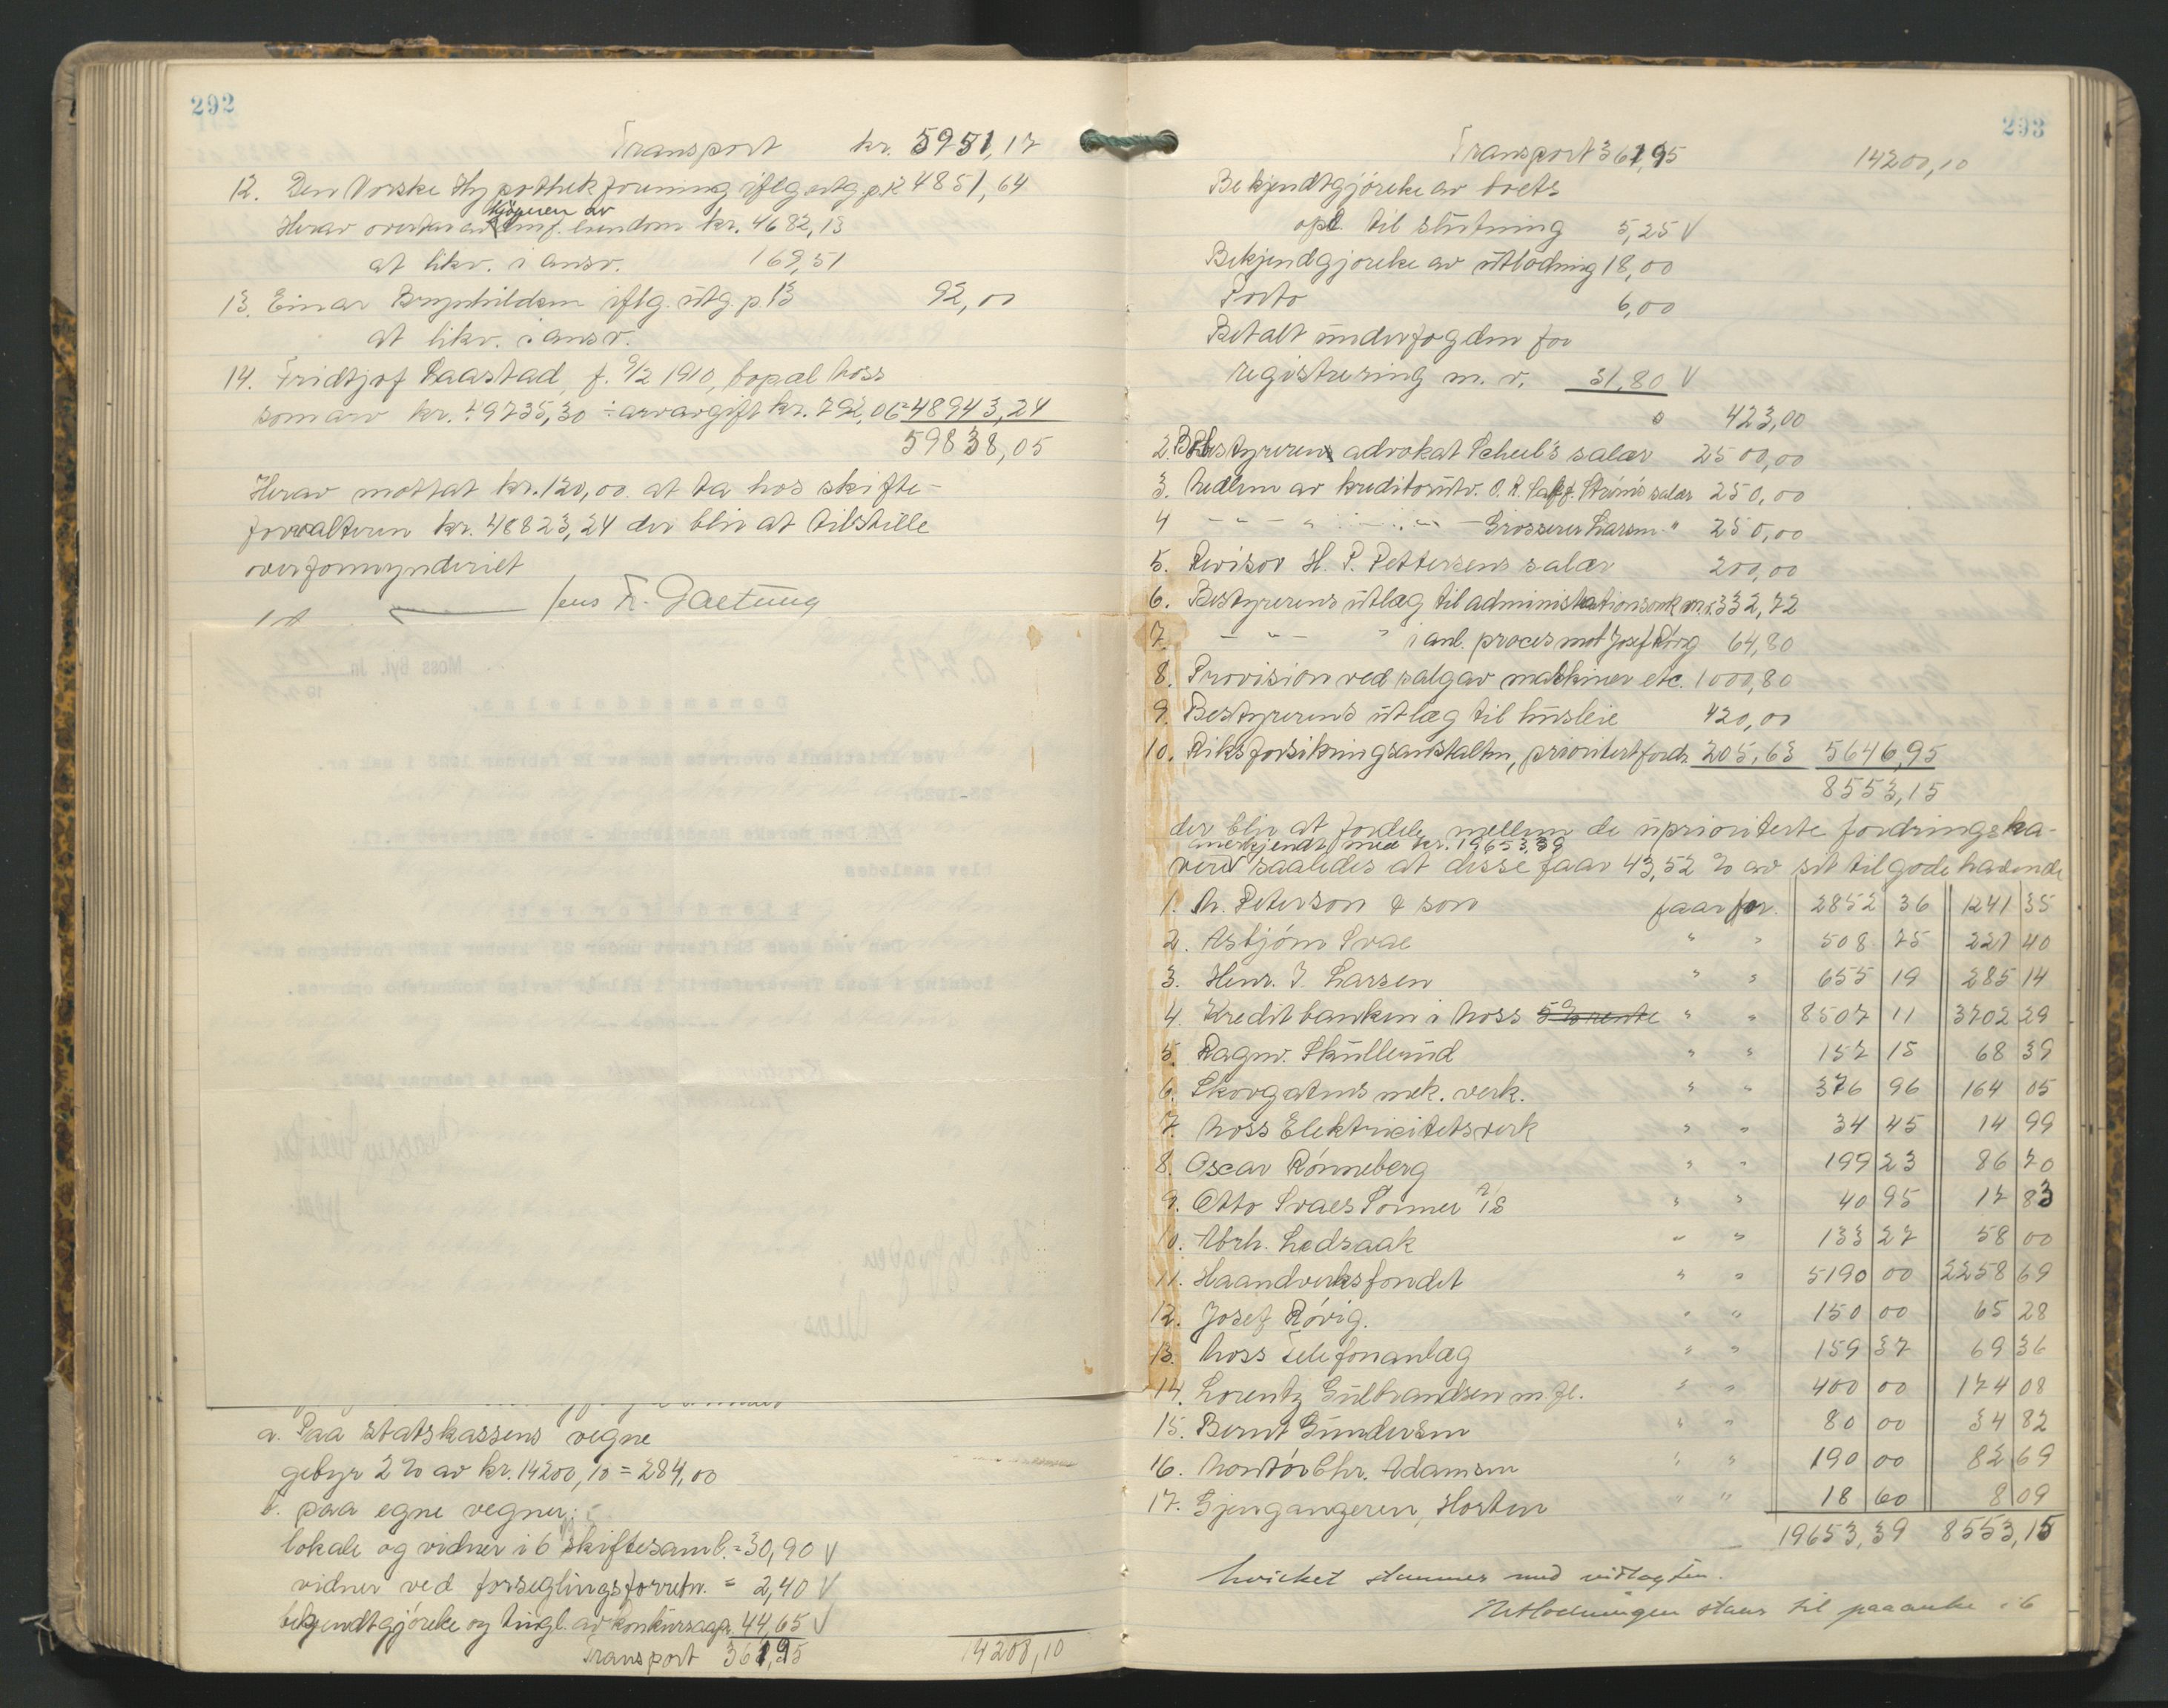 292
Transport kr. 5951,17
12. Den Norske Hypothekforening iflg utg. p 12 4851,64
kjøperen av
Herav overtar av eiendom kr. 4682,13
at likv. i ansv. 169,51
13. Einar Brynhildsen iflg. utg. p 13 92,00
at likv. i ansv.
14. Fridtjof Raastad, f. 9/2 1910, bopæl Moss
som arv kr. 49735,30 ÷ arvavgift kr. 792,06 = 48943,24
59838,05
Herav mottat kr. 120,00 at ta hos skifte-
forvalteren kr. 48823,24 der blir at tilstille
overformynderiet
Jens F. Gaetung
a. Paa statskassens vegne
gebyr 2 % av kr. 14200,10 = 284,00
b. paa egne vegner:
lokale og vidner i 6 skiftesaml. = 30,90 V
vidner ved forseglingsforretn. = 2,40 V
bekjendtgjørelse og tingl. av konkursaapn. 44,65 V
Transport 361,95
14200,10
293
Transport 361,95 14200,10
Bekjendtgjørelse av boets
opl. til slutning 5,25 V
Bekjendtgjørelse av utlodning 18,00
Porto 6,00
Betalt underfogden for
registrering m. v. 31,80 V
423,00
2. Bobestyreren advokat Scheel's salær 2500,00
3. Medlem av kreditorutv. O. R. Sakf. Strøm's salær 250,00
4 - " - " - " - Grosserer Larsen " 250,00
5. Revisor H. P. Pettersens salær 200,00
6. Bestyrerens utlæg til administrationsomk. m. v. 332,72
7. - " - " i anl. proces mot Josef Rørig 64,80
8. Provision ved salg av maskiner etc. 1000,80
9. Bestyrerens utlæg til husleie 420,00
10. Riksforsikringsanstalten, prioritert fordr. 205,63 5646,95
8553,15
der blir at fordele mellem de uprioriterte fordringsha-
anerkjendt med kr. 19653,39
vere saaledes at disse faar 43,52 % av sit tilgodehavende
1. M. Peterson & søn faar for 2852 36 1241 35
2. Asbjørn Svae " " 508 75 221 40
3. Henr. J. Larsen " " 655 19 285 14
4. Kreditbanken i Moss 5 % rente " " 8507 11 3702 29
5. Ragnv. Skullerud " " 157 15 68 39
6. Skovgatens mek. verk. " " 376 96 164 05
7. Moss Elektricitetsverk " " 34 45 14 99
8. Oscar Rønneberg " " 199 23 86 70
9. Otto Svaes Sønner A/S " " 40 95 17 83
10. Abrh. Lodsaak " " 133 27 58 00
11. Haandverksfondet " " 5190 00 2258 69
12. Josef Rørig. " " 150 00 65 28
13. Moss Telefonanlæg " " 159 37 69 36
14. Lorentz Gulbrandsen m. fl. " " 400 00 174 08
15. Bernt Gundersen " " 80 00 34 82
16. Montør Chr. Adamsen " " 190 00 82 69
17. Gjengangeren, Horten " " 18 60 8 09
19653,39 8553,15
hvilket stemmer med vedtagten.
Utlodningen staar til paaanke i 6